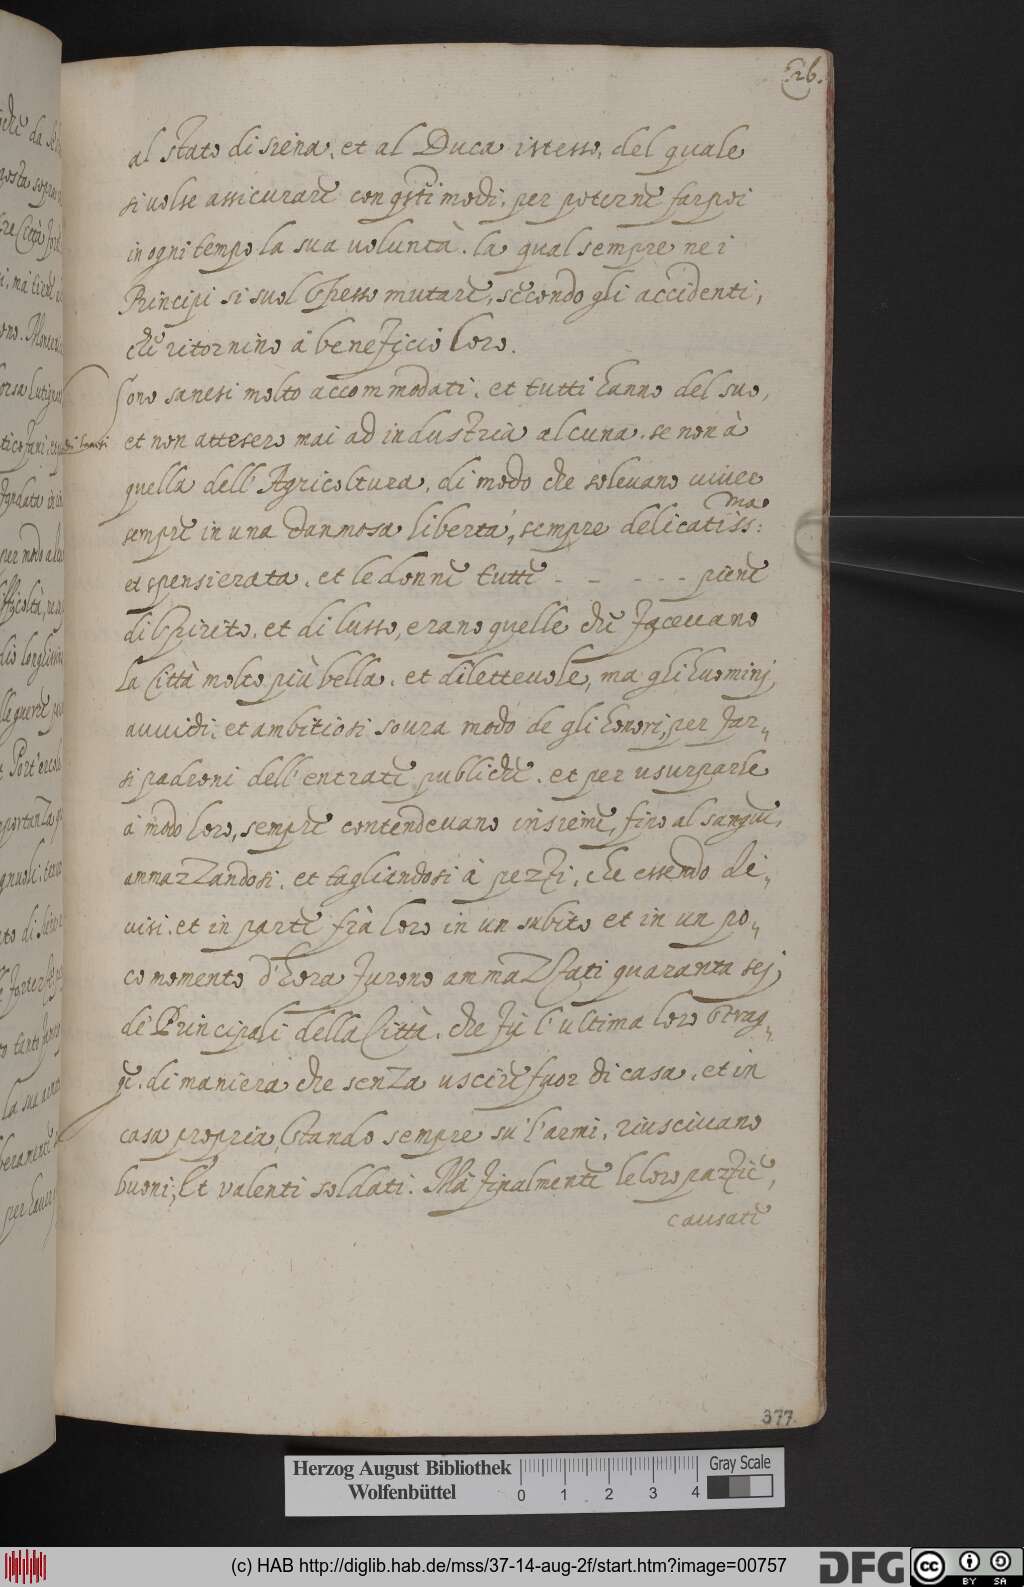 26.
al stato di siena, et al Duca istesso, del quale
si uolse assicurare con q.sti modi, per poterne far poi
in ogni tempo la sua uoluntà. la qual sempre nei
Principi si suol spesso mutare, secondo gli accidenti,
che ritornino à beneficio loro.
Sono sanesi molto accommodati, et tutti hanno del suo,
et non attesero mai ad industria alcuna, se non à
quella dell' Agricoltura, di modo che soleuano uiuer
sempre in una dannosa libertà, sempre delicatiss:ma
et spensierata, et le donne tutte - - - - - piene
di spirito, et di lusso, erano quelle che faceuano
la Città molto più bella, et diletteuole, ma gli huominj
auuidi, et ambitiosi soura modo de gli honori, per far„
si padroni dell' entrate publiche, et per usurparle
à modo loro, sempre contendeuano insieme, fino al sangue,
ammazzandosi, et tagliandosi à pezzi, che essendo de„
uisi, et in parte frà loro in un subito et in un po„
co momento d'hora furono ammazzati quaranta sej
de' Principali della Città, che fù l' ultima loro strag„
ge, di maniera che senza uscire fuor di casa, et in
casa propria, stando sempre sù l' armi, riusciuano
buoni, et ualenti soldati. Mà finalmente le loro pazzie,
causate
377
Herzog August Bibliothek
Wolfenbüttel
0 1 2 3 4
Gray Scale
(c) HAB http://diglib.hab.de/mss/37-14-aug-2f/start.htm?image=00757
DFG
cc BY SA